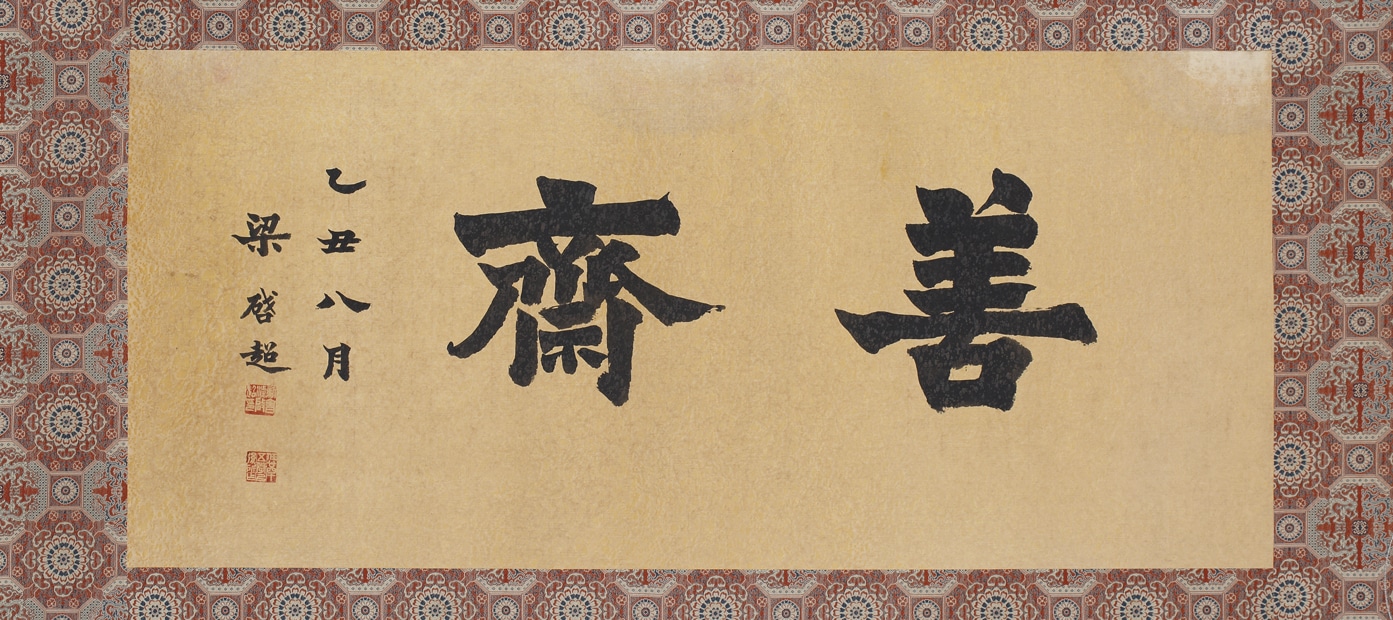 善齋
乙丑八月
梁啓超